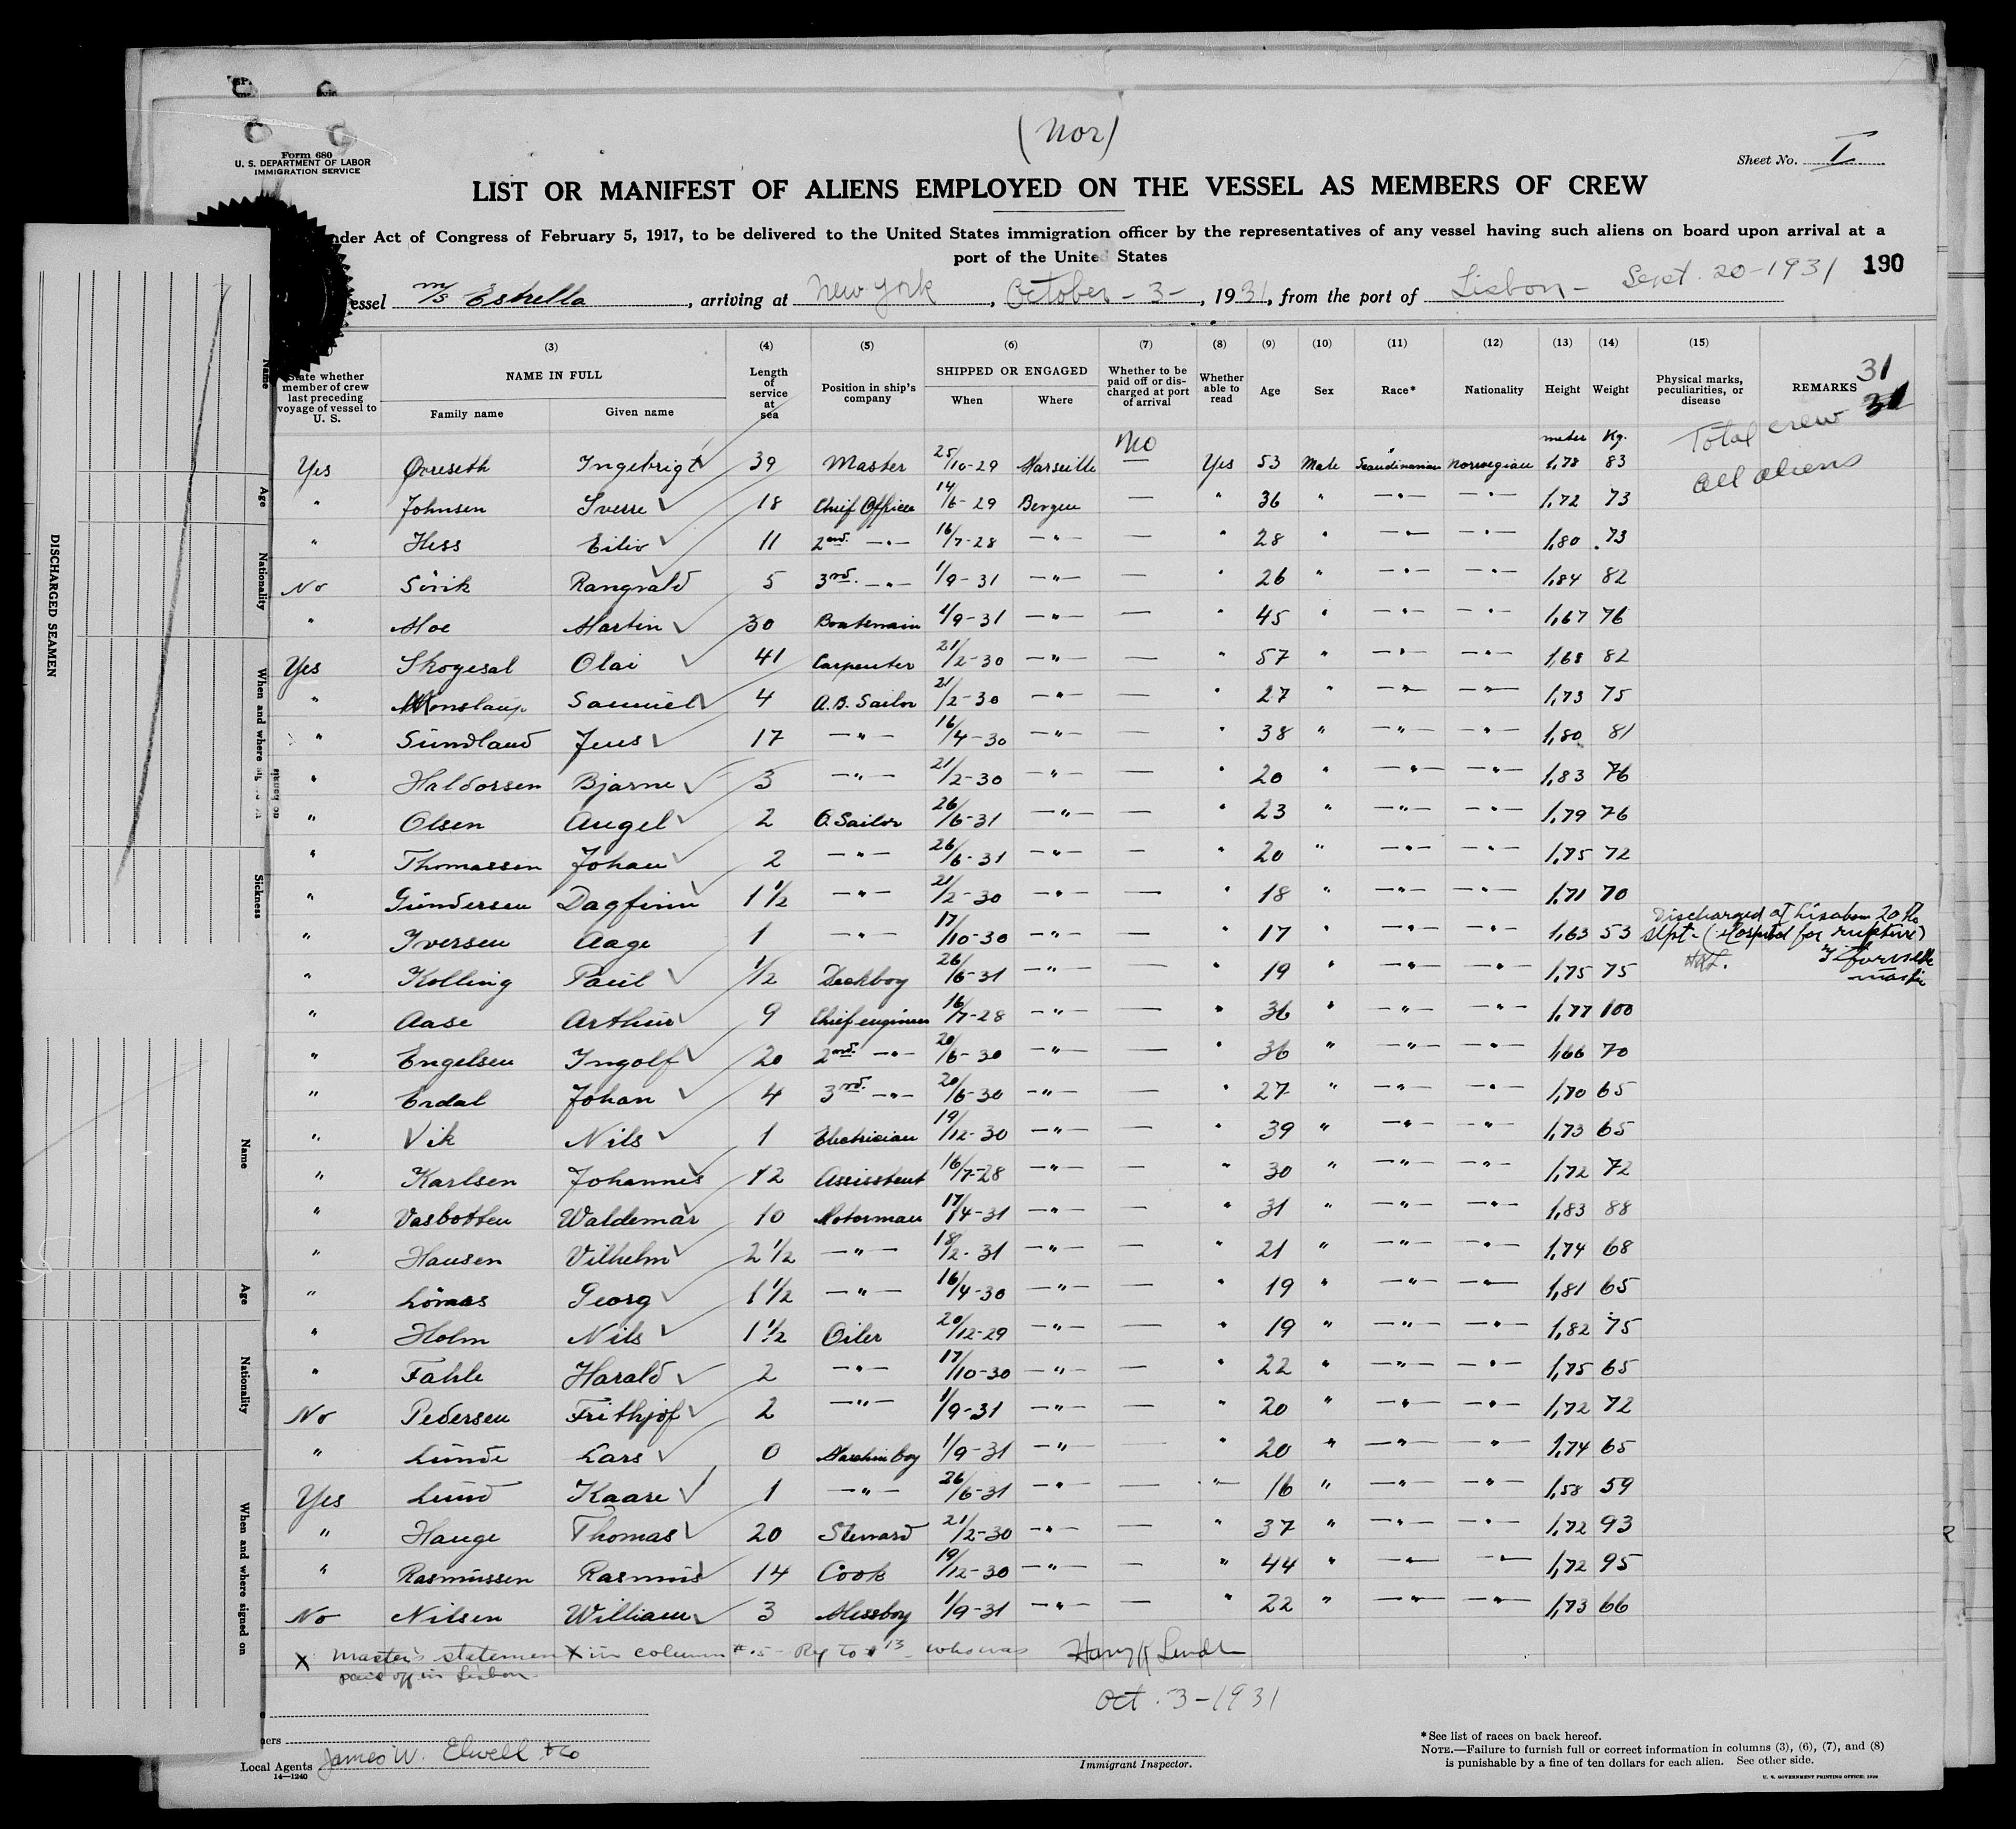 (Nor)
Form 680
U. S. DEPARTMENT OF LABOR
IMMIGRATION SERVICE
Sheet No. I
LIST OR MANIFEST OF ALIENS EMPLOYED ON THE VESSEL AS MEMBERS OF CREW
nder Act of Congress of February 5, 1917, to be delivered to the United States immigration officer by the representatives of any vessel having such aliens on board upon arrival at a
port of the United States
190
essel m/s Estrella, arriving at New York, October - 3 -, 1931, from the port of Lisbon - Sept. 20-1931
(3) (4) (5) (6) (7) (8) (9) (10) (11) (12) (13) (14) (15)
State whether member of crew last preceding voyage of vessel to U. S.
NAME IN FULL
Family name Given name
Length of service at sea
Position in ship's company
SHIPPED OR ENGAGED
When Where
Whether to be paid off or discharged at port of arrival
Whether able to read
Age Sex Race* Nationality Height Weight
Physical marks, peculiarities, or disease
REMARKS
31
31
Total crew
All aliens
No
meter Kg.
Yes Øvreseth Ingebrigt 39 Master 25/10-29 Marseille — Yes 53 Male Scandinavian Norwegian 1,78 83
" Johnsen Sverre 18 Chief Officer 14/6-29 Bergen — " 36 " —"— —"— 1,72 73
" Hess Eiliv 11 2nd. —"— 16/7-28 —"— — " 28 " —"— —"— 1,80 73
No Sörik Rangvald 5 3rd. —"— 1/9-31 —"— — " 26 " —"— —"— 1,84 82
" Moe Martin 30 Boatsmain 1/9-31 —"— — " 45 " —"— —"— 1,67 76
Yes Skogesal Olai 41 Carpenter 21/2-30 —"— — " 57 " —"— —"— 1,68 82
" Monslaup Samuel 4 A.B. Sailor 21/2-30 —"— — " 27 " —"— —"— 1,73 75
" Sundland Jens 17 —"— 16/4-30 —"— — " 38 " —"— —"— 1,80 81
" Haldorsen Bjarne 3 —"— 21/2-30 —"— — " 20 " —"— —"— 1,83 76
" Olsen Angel 2 O. Sailor 26/6-31 —"— — " 23 " —"— —"— 1,79 76
" Thomassen Johan 2 —"— 26/6-31 —"— — " 20 " —"— —"— 1,75 72
" Gundersen Dagfinn 1 1/2 —"— 21/2-30 —"— — " 18 " —"— —"— 1,71 70
" Iversen Aage 1 —"— 17/10-30 —"— — " 17 " —"— —"— 1,63 53 Discharged at Lisabon 20th
Sept- (Hospital for rupture)
" Kolling Paul 1/2 Deckboy 26/6-31 —"— — " 19 " —"— —"— 1,75 75
" Aase Arthur 9 Chief engineer 16/7-28 —"— — " 36 " —"— —"— 1,77 100
" Engelsen Ingolf 20 2nd. —"— 20/6-30 —"— — " 36 " —"— —"— 1,66 70
" Erdal Johan 4 3rd. —"— 20/6-30 —"— — " 27 " —"— —"— 1,70 65
" Vik Nils 1 Electrician 19/12-30 —"— — " 39 " —"— —"— 1,73 65
" Karlsen Johannes 12 Assisstent 16/7-28 —"— — " 30 " —"— —"— 1,72 72
" Vasbotten Waldemar 10 Motorman 17/4-31 —"— — " 31 " —"— —"— 1,83 88
" Hansen Vilhelm 2 1/2 —"— 18/2-31 —"— — " 21 " —"— —"— 1,74 68
" Lömas Georg 1 1/2 —"— 16/4-30 —"— — " 19 " —"— —"— 1,81 65
" Holm Nils 1 1/2 Oiler 20/12-29 —"— — " 19 " —"— —"— 1,82 75
" Fahle Harald 2 —"— 17/10-30 —"— — " 22 " —"— —"— 1,75 65
No Pedersen Frithjof 2 —"— 1/9-31 —"— — " 20 " —"— —"— 1,72 72
" Lunde Lars 0 Maschinboy 1/9-31 —"— — " 20 " —"— —"— 1,74 65
Yes Lund Kaare 1 —"— 26/6-31 —"— — " 16 " —"— —"— 1,58 59
" Hauge Thomas 20 Steward 21/2-30 —"— — " 37 " —"— —"— 1,72 93
" Rasmussen Rasmus 14 Cook 19/12-30 —"— — " 44 " —"— —"— 1,72 95
No Nilsen William 3 Messboy 1/9-31 —"— — " 22 " —"— —"— 1,73 66
X Master's statement in column #15 - to #13 who was
paid off in Lisbon-
Oct. 3-1931
ners
Local Agents James W. Elwell & Co
14—1240
Immigrant Inspector.
*See list of races on back hereof.
NOTE.—Failure to furnish full or correct information in columns (3), (6), (7), and (8)
is punishable by a fine of ten dollars for each alien. See other side.
DISCHARGED SEAMEN
Name
Age
Nationality
When and where
Sickness
Name
Age
Nationality
When and where signed on